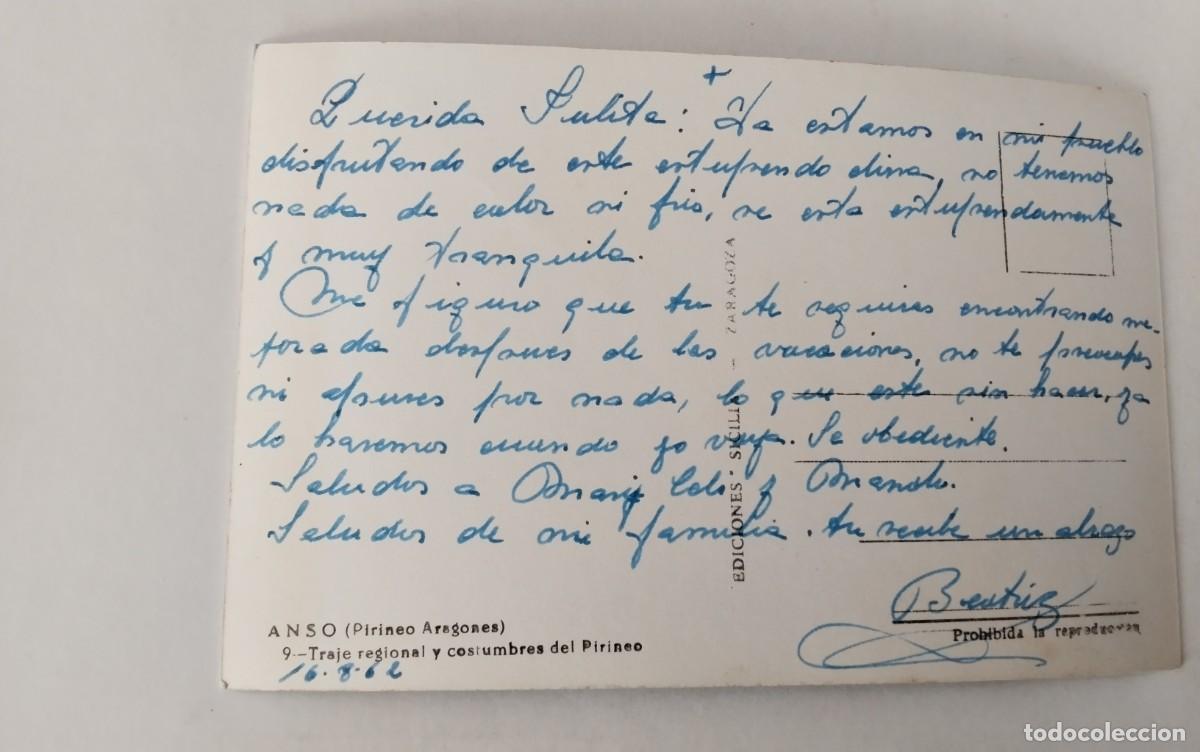 +
Querida Julita: Ya estamos en mi pueblo
disfrutando de este estupendo clima, no tenemos
nada de calor ni frio, se esta estupendamente
y muy tranquila.
Me figuro que tu te seguires encontrando me-
jorada despues de las vacaciones, no te preocupes
ni apures por nada, lo que este sin hacer, ya
lo haremos cuando yo vaya. Se obediente.
Saludos a Mary Celi y Manolo.
Saludos de mi familia. tu recibe un abrazo
Beatriz
EDICIONES SICILI - ZARAGOZA
ANSO (Pirineo Aragones)
9-–Traje regional y costumbres del Pirineo
16-8-62
Prohibida la reproduccion
todocoleccion